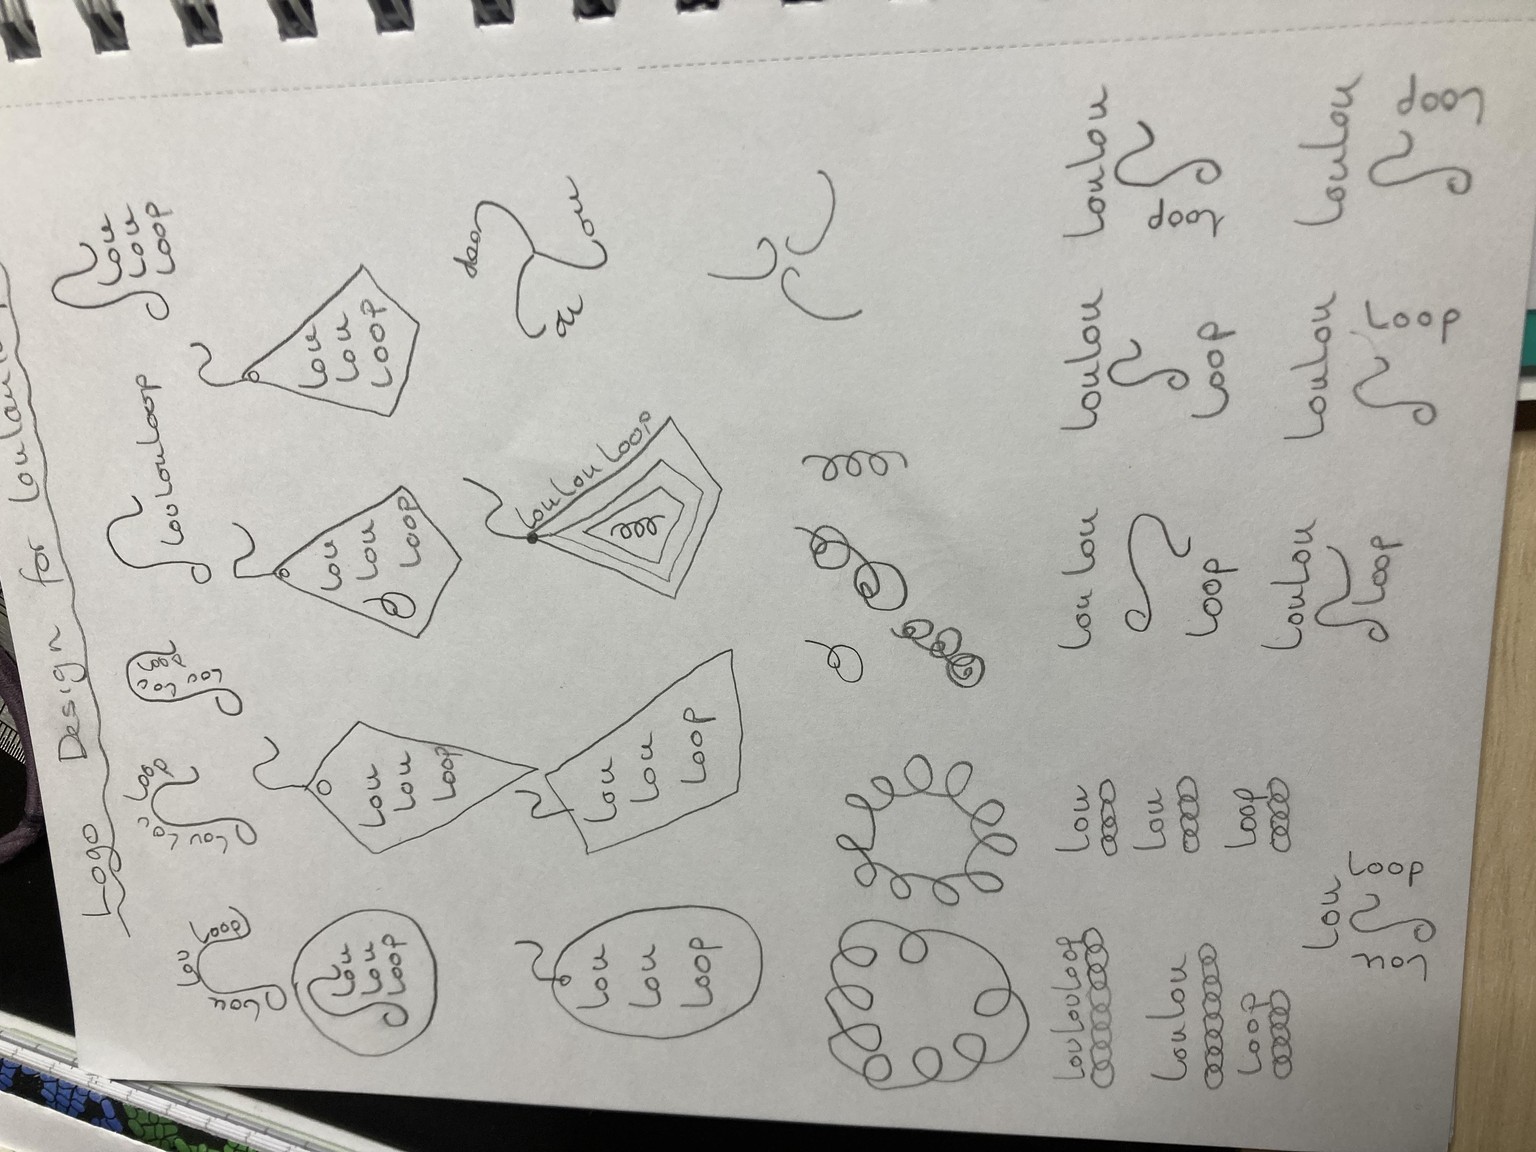 Logo Design for
Lou
Lou
Loop
Lou
Loop
Lou
Loop
LouLouLoop
Lou
Lou
Loop
Lou
Lou
Loop
Lou
Lou
Loop
Lou
Lou
Loop
Lou
Lou
Loop
Lou
Lou
Loop
Lou
Lou
Loop
LouLouLoop
Lou
LouLouLoop
Lou
Lou
Loop
Lou Lou
Loop
LouLou
Loop
LouLou
LouLou
Loop
Lou
Loop
LouLou
Loop
LouLou
Loop
LouLou